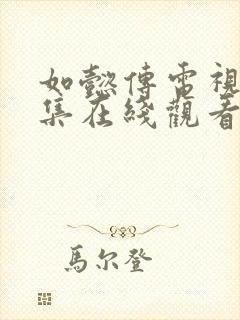 如懿傳電視
集在綫觀看
馬尔登